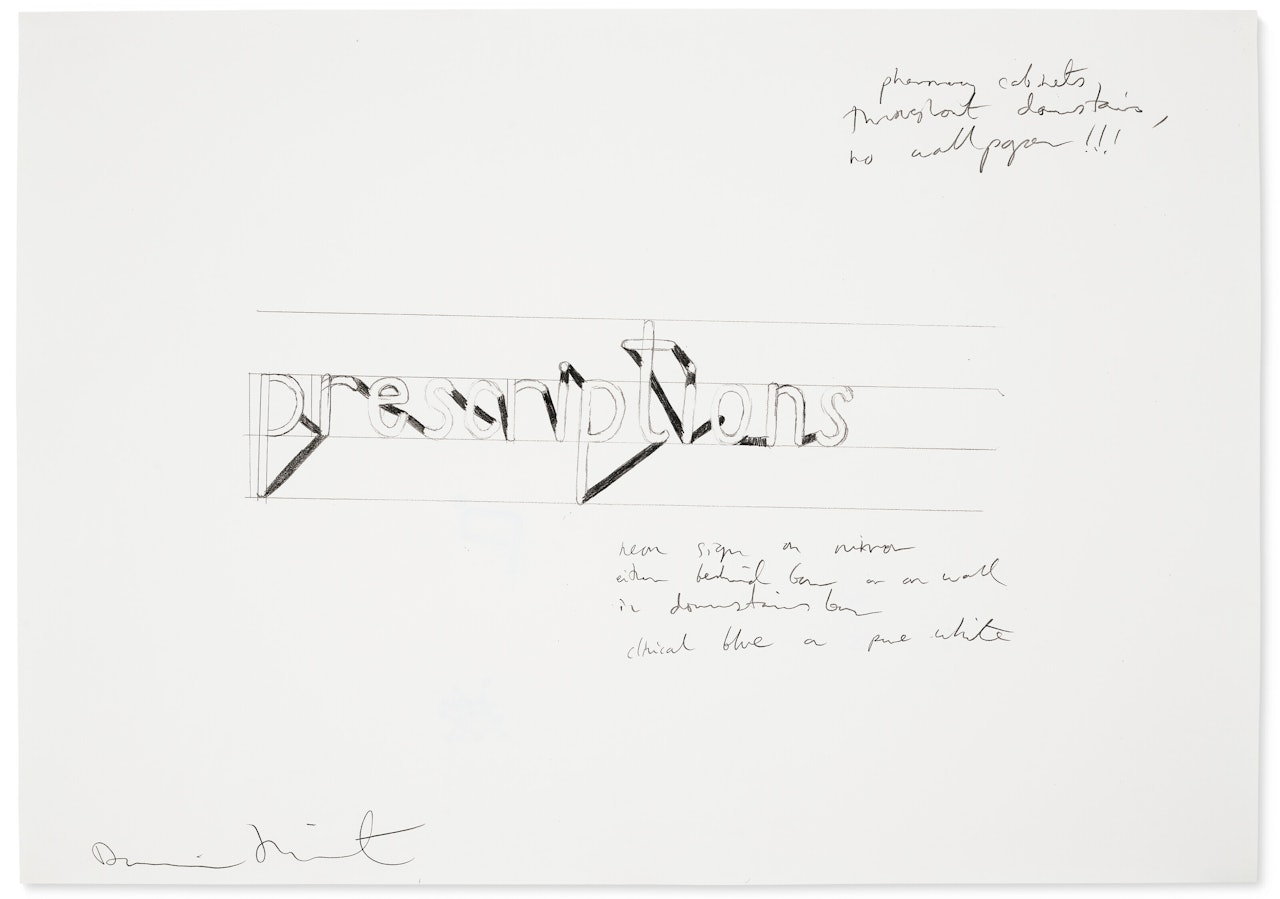 pharmacy cabinets,
throughout downstairs,
no wallpaper !!!
prescriptions
neon sign on mirror
either behind bar or on wall
in downstairs bar
clinical blue or pure white
Damien Hirst